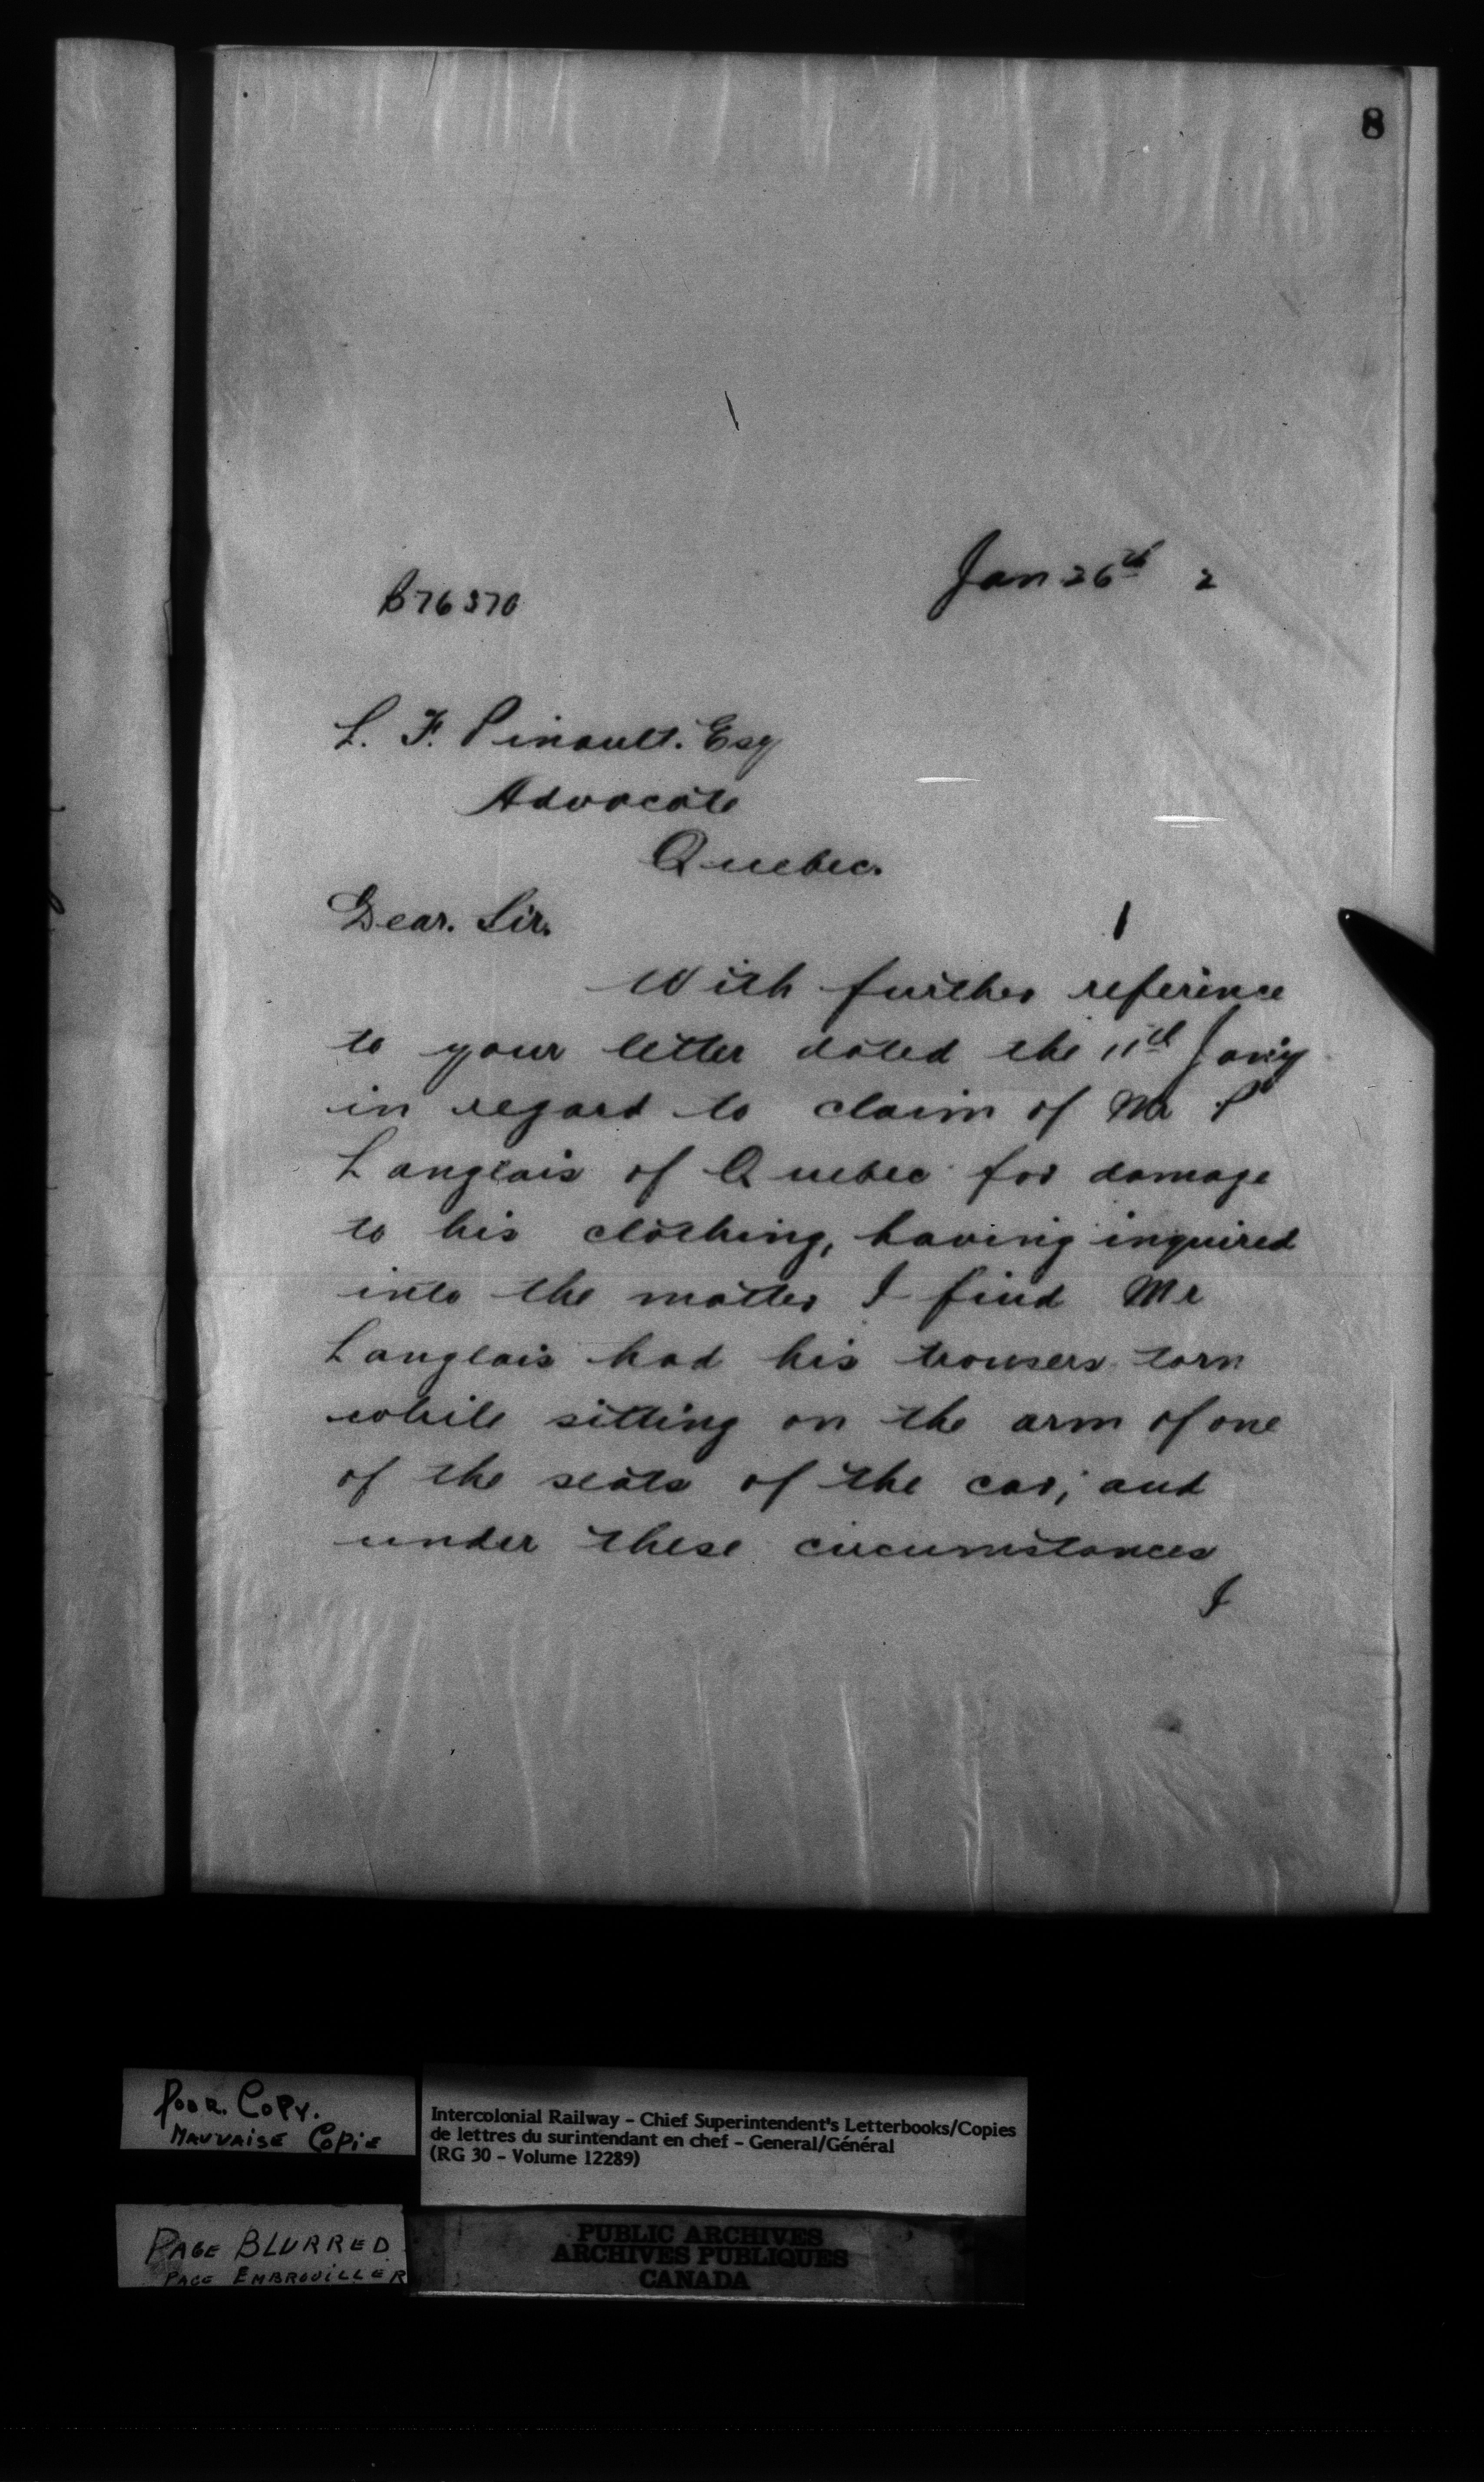 8
Jan 26th 2
B76370
L. F. Pinault. Esq
Advocate
Quebec.
Dear. Sir.
With further reference
to your letter dated the 11th Jany
in regard to claim of Mr P
Langlais of Quebec for damage
to his clothing, having inquired
into the matter I find Mr
Langlais had his trousers torn
while sitting on the arm of one
of the seats of the car; and
under these circumstances
I
Poor. Copy.
Mauvaise Copie
Intercolonial Railway - Chief Superintendent's Letterbooks/Copies
de lettres du surintendant en chef - General/Général
(RG 30 - Volume 12289)
Page Blurred
Page Embrouiller
PUBLIC ARCHIVES
ARCHIVES PUBLIQUES
CANADA